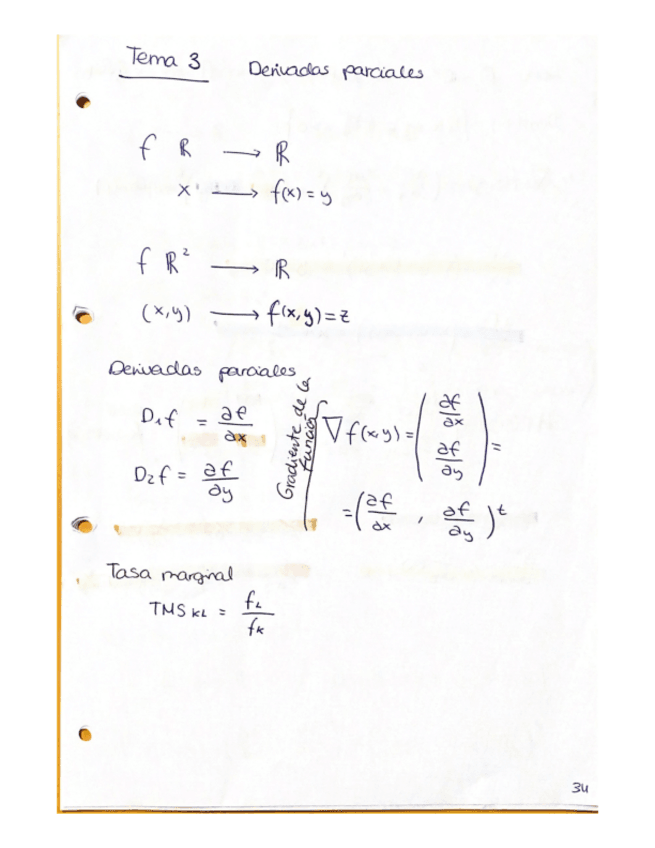 Tema 3 Derivadas parciales
f ℝ → ℝ
x → f(x) = y
f ℝ² → ℝ
(x,y) → f(x,y) = z
Derivadas parciales
D₁f = ∂f/∂x
D₂f = ∂f/∂y
Gradiente de la
Función
∇f(x,y) = (∂f/∂x ∂f/∂y) =
= (∂f/∂x , ∂f/∂y)ᵗ
Tasa marginal
TMS KL = f_L/f_K
34